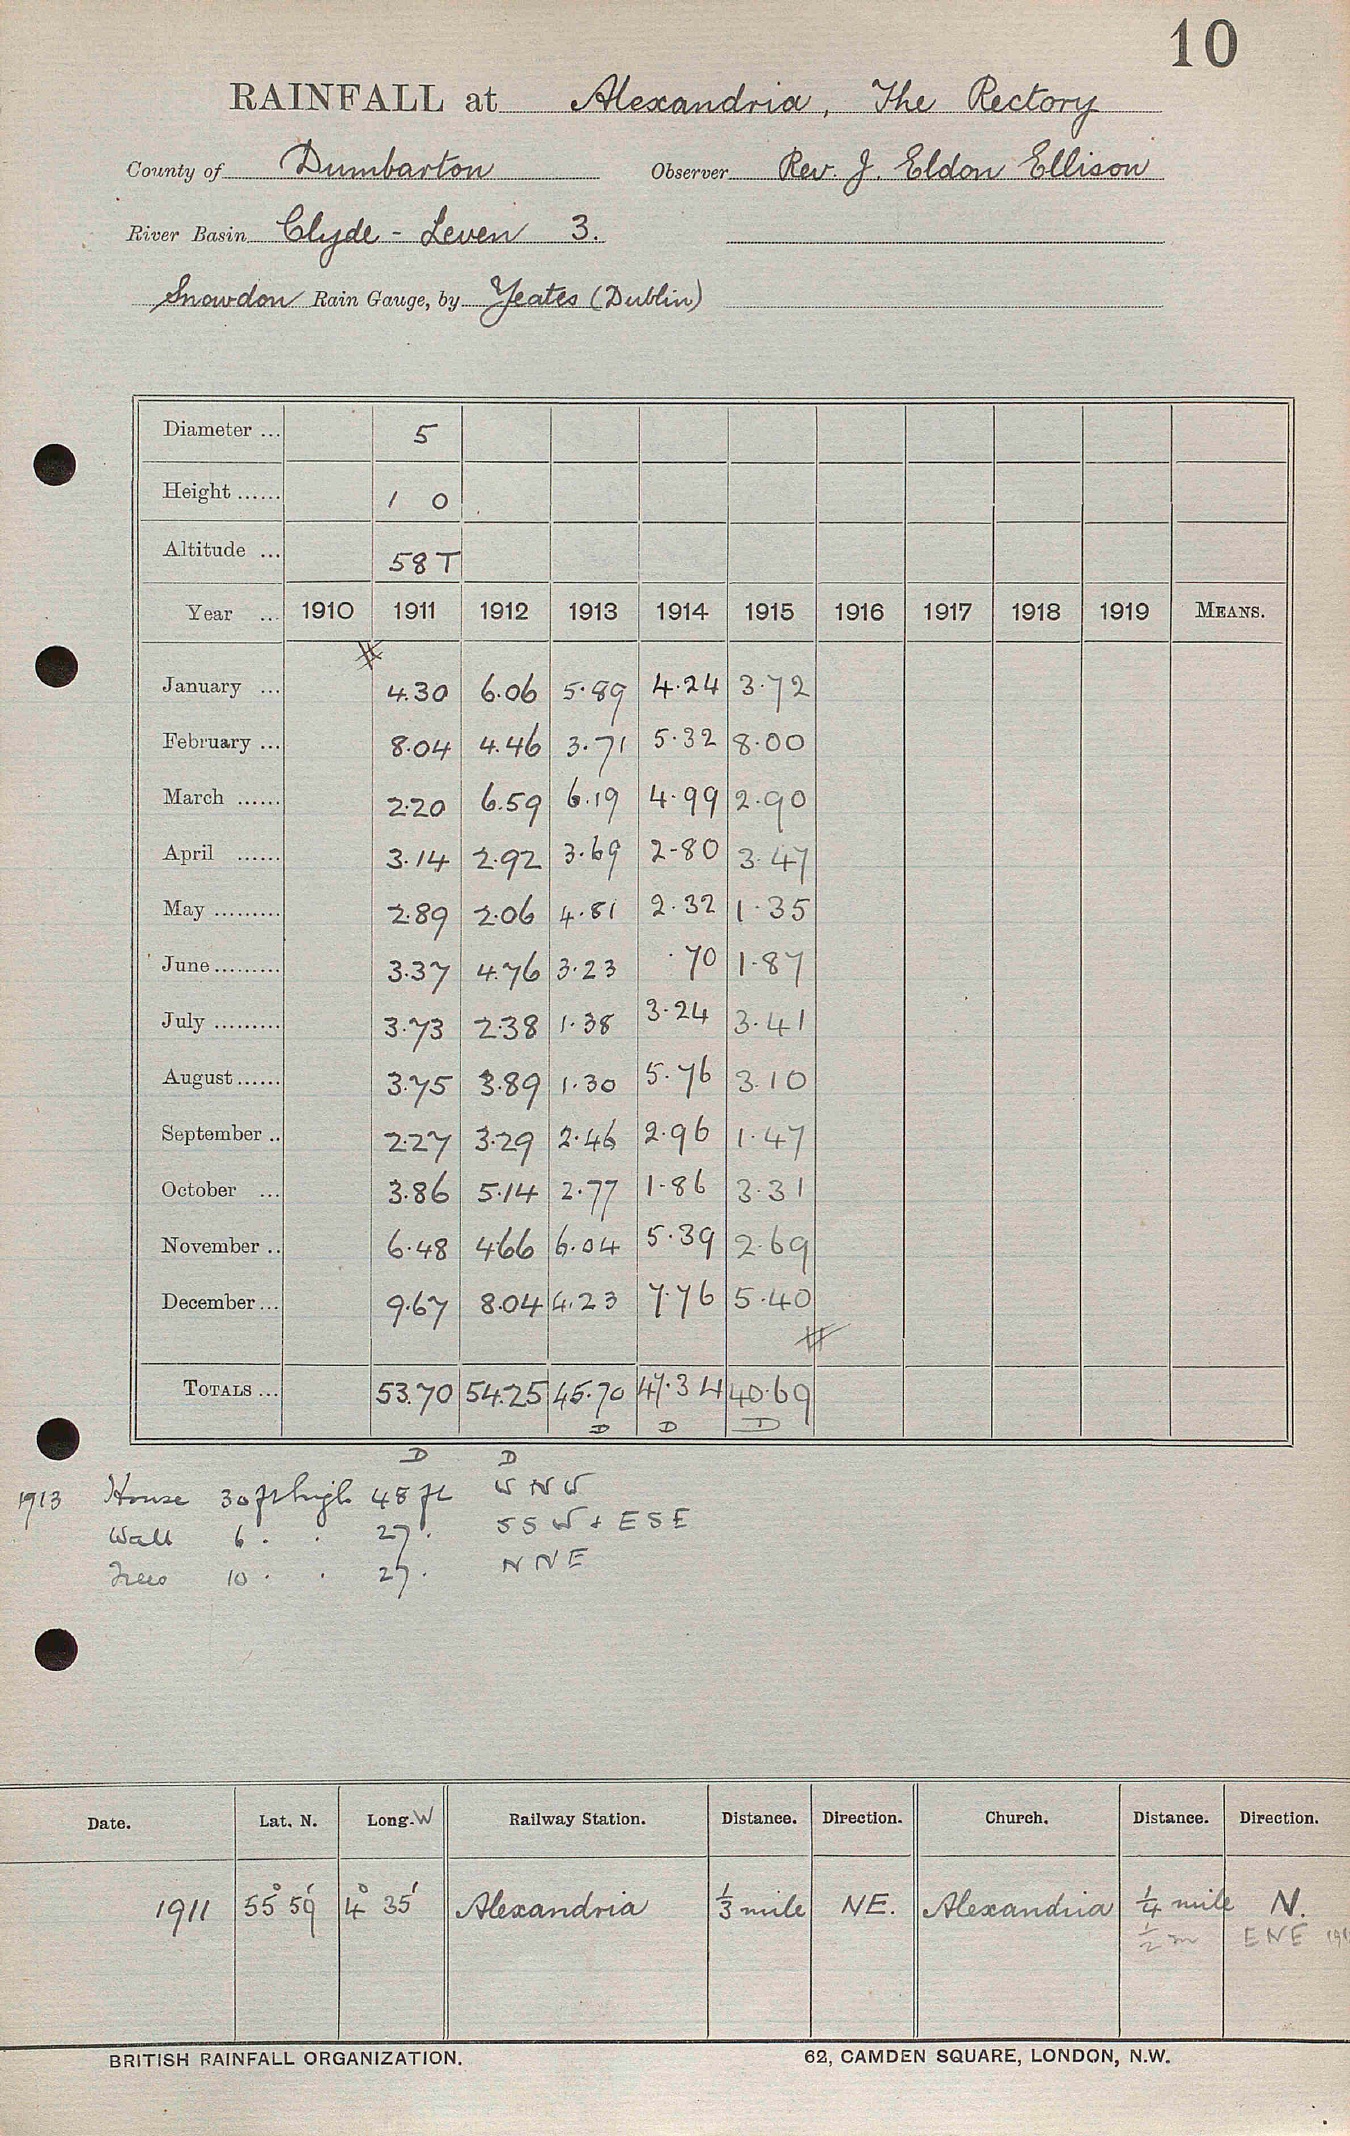 10
RAINFALL at Alexandria, The Rectory
County of Dumbarton Observer Rev. J. Eldon Ellison
River Basin Clyde - Leven 3.
Snowdon Rain Gauge, by Yeates (Dublin)
Diameter ... 5
Height ...... 1 0
Altitude ... 58 T
Year ... 1910 1911 1912 1913 1914 1915 1916 1917 1918 1919 MEANS.
January ... 4.30 6.06 5.89 4.24 3.72
February ... 8.04 4.46 3.71 5.32 8.00
March ...... 2.20 6.59 6.19 4.99 2.90
April ...... 3.14 2.92 3.69 2.80 3.47
May ......... 2.89 2.06 4.81 2.32 1.35
June ......... 3.37 4.76 3.23 .70 1.87
July ......... 3.73 2.38 1.38 3.24 3.41
August ...... 3.75 3.89 1.30 5.76 3.10
September .. 2.27 3.29 2.46 2.96 1.47
October ... 3.86 5.14 2.77 1.86 3.31
November .. 6.48 4.66 6.04 5.39 2.69
December ... 9.67 8.04 4.23 7.76 5.40
TOTALS ... 53.70 54.25 45.70 47.34 40.69
D D D
D D
1913 House 30 ft high 48 ft W N W
Wall 6 . . 27 . S S W + E S E
Trees 10 . . 27 . N N E
Date. Lat. N. Long. W Railway Station. Distance. Direction. Church. Distance. Direction.
1911 55° 59' 4° 35' Alexandria 1/3 mile NE. Alexandria 1/4 mile N.
1/2 m ENE
BRITISH RAINFALL ORGANIZATION. 62, CAMDEN SQUARE, LONDON, N.W.